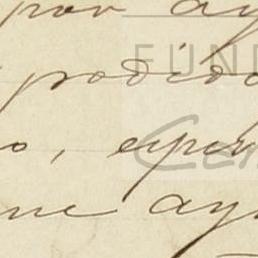 por ay
podido
o, esper
me ayu
FUND
Cen